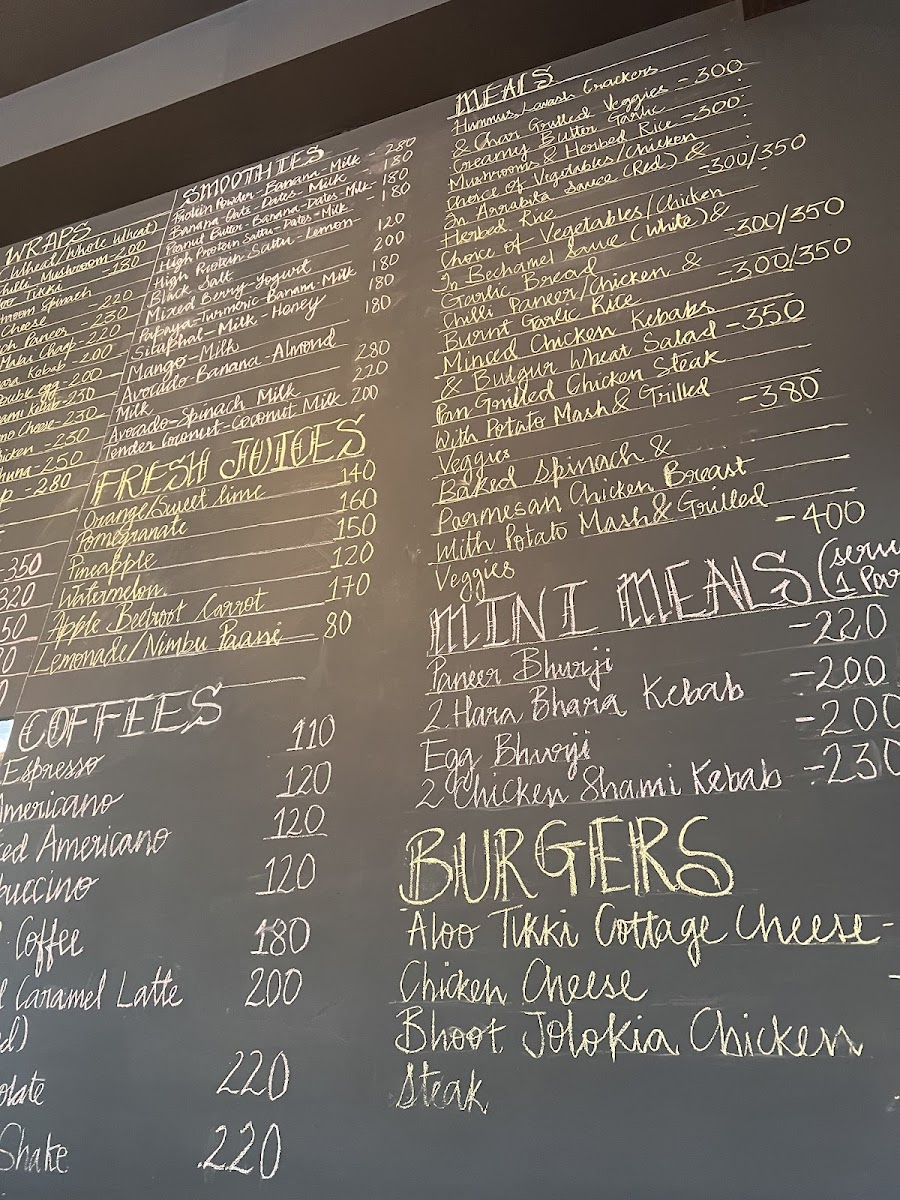 WRAPS
(Wheat/Whole Wheat)
Chilli Mushroom-200
Tikki -180
Mushroom Spinach
Cheese -220
Paneer -230
Malai Chaap -220
Kebab -200
Double egg -200
Shami Kebab-230
Cheese-230
Chicken -250
-250
-280
-350
320
50
SMOOTHIES
Protein Powder-Banana-Milk - 280
Banana Oats-Dates Milk 180
Peanut Butter-Banana-Dates-Milk- 180
High Protein Sattu-Dates-Milk - 180
High Protein Sattu-Lemon
Black Salt 120
Mixed Berry-Yogurt 200
Papaya-Turmeric-Banana-Milk 180
Sitaphal-Milk-Honey 180
Mango-Milk 180
Avocado-Banana-Almond
Milk 280
Avocado-Spinach Milk 220
Tender Coconut-Coconut Milk 200
FRESH JUICES
Orange/Sweet lime 140
Pomegranate 160
Pineapple 150
Watermelon 120
Apple Beetroot Carrot 170
Lemonade/Nimbu Paani 80
COFFEES
Espresso 110
Americano 120
ced Americano 120
puccino 120
Coffee 180
Caramel Latte 200
d)
olate 220
Shake 220
MEALS
Hummus, Lavash Crackers
& Char Grilled Veggies -300
Creamy Butter Garlic
Mushrooms & Herbed Rice -300
Choice of Vegetables/Chicken
In Arrabita Sauce (Red) &
Herbed Rice -300/350
Choice of Vegetables/Chicken
In Bechamel Sauce (White) &
Garlic Bread -300/350
Chilli Paneer/Chicken &
Burnt Garlic Rice -300/350
Minced Chicken Kebabs
& Bulgur Wheat Salad -350
Pan Grilled Chicken Steak
With Potato Mash & Grilled
Veggies -380
Baked Spinach &
Parmesan Chicken Breast
With Potato Mash & Grilled
Veggies -400
MINI MEALS (serv
1 Par
Paneer Bhurji -220
2 Hara Bhara Kebab -200
Egg Bhurji -200
2 Chicken Shami Kebab -230
BURGERS
Aloo Tikki Cottage Cheese-
Chicken Cheese
Bhoot Jolokia Chicken
Steak